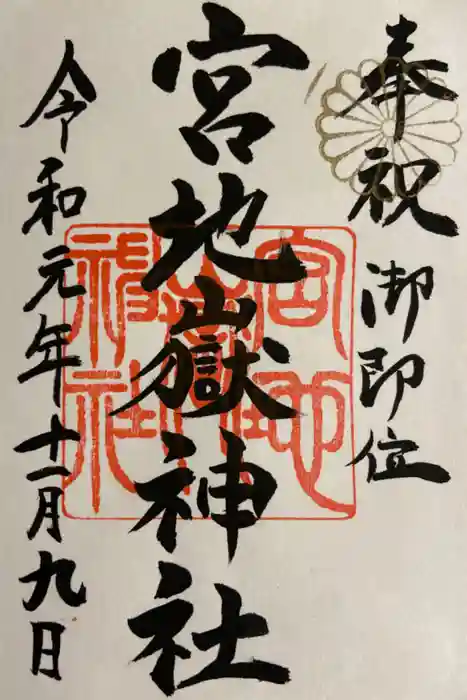 奉祝 御即位
宮地嶽神社
宮地嶽神社
令和元年十一月九日